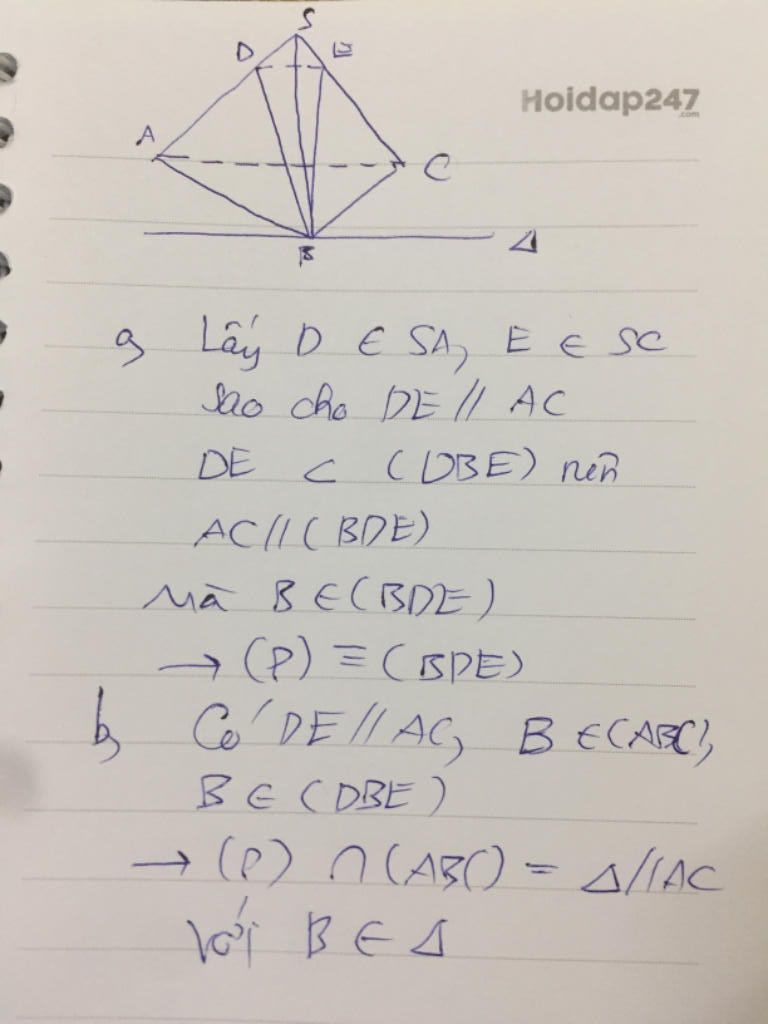 S
D E
Hoidap247
.com
A
C
B
Δ
a, Lấy D ∈ SA, E ∈ SC
sao cho DE // AC
DE ⊂ (DBE) nên
AC // (BDE)
Mà B ∈ (BDE)
→ (P) ≡ (BDE)
b, Có DE // AC, B ∈ (ABC),
B ∈ (DBE)
→ (P) ∩ (ABC) = Δ // AC
Với B ∈ Δ